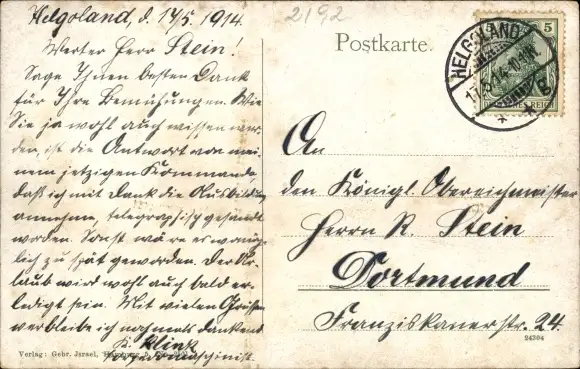 Helgoland, d. 17/5. 1914.
Werter Herr Stein!
Sage Ihnen besten Dank
für Ihre Bemühungen. Wie
Sie ja wohl auch wissen wer-
den, ist die Antwort von mei-
nem jetzigen Kommando,
daß ich mit Dank die Ausbildung
annehme, telegraphisch gesandt
worden. Sonst wäre es womög-
lich zu spät geworden. Der Ur-
laub wird wohl auch bald er-
ledigt sein. Mit vielen Grüßen
verbleibe ich nochmals dankend
Klink
Torpedomaschinist.
Verlag: Gebr. Jsrael, Hamburg
2192
Postkarte.
HELGOLAND
17.5.14.
5
DEUTSCHES REICH
An
den Königl. Obereichmeister
Herrn R. Stein
Dortmund
Franziskanerstr. 24.
24304